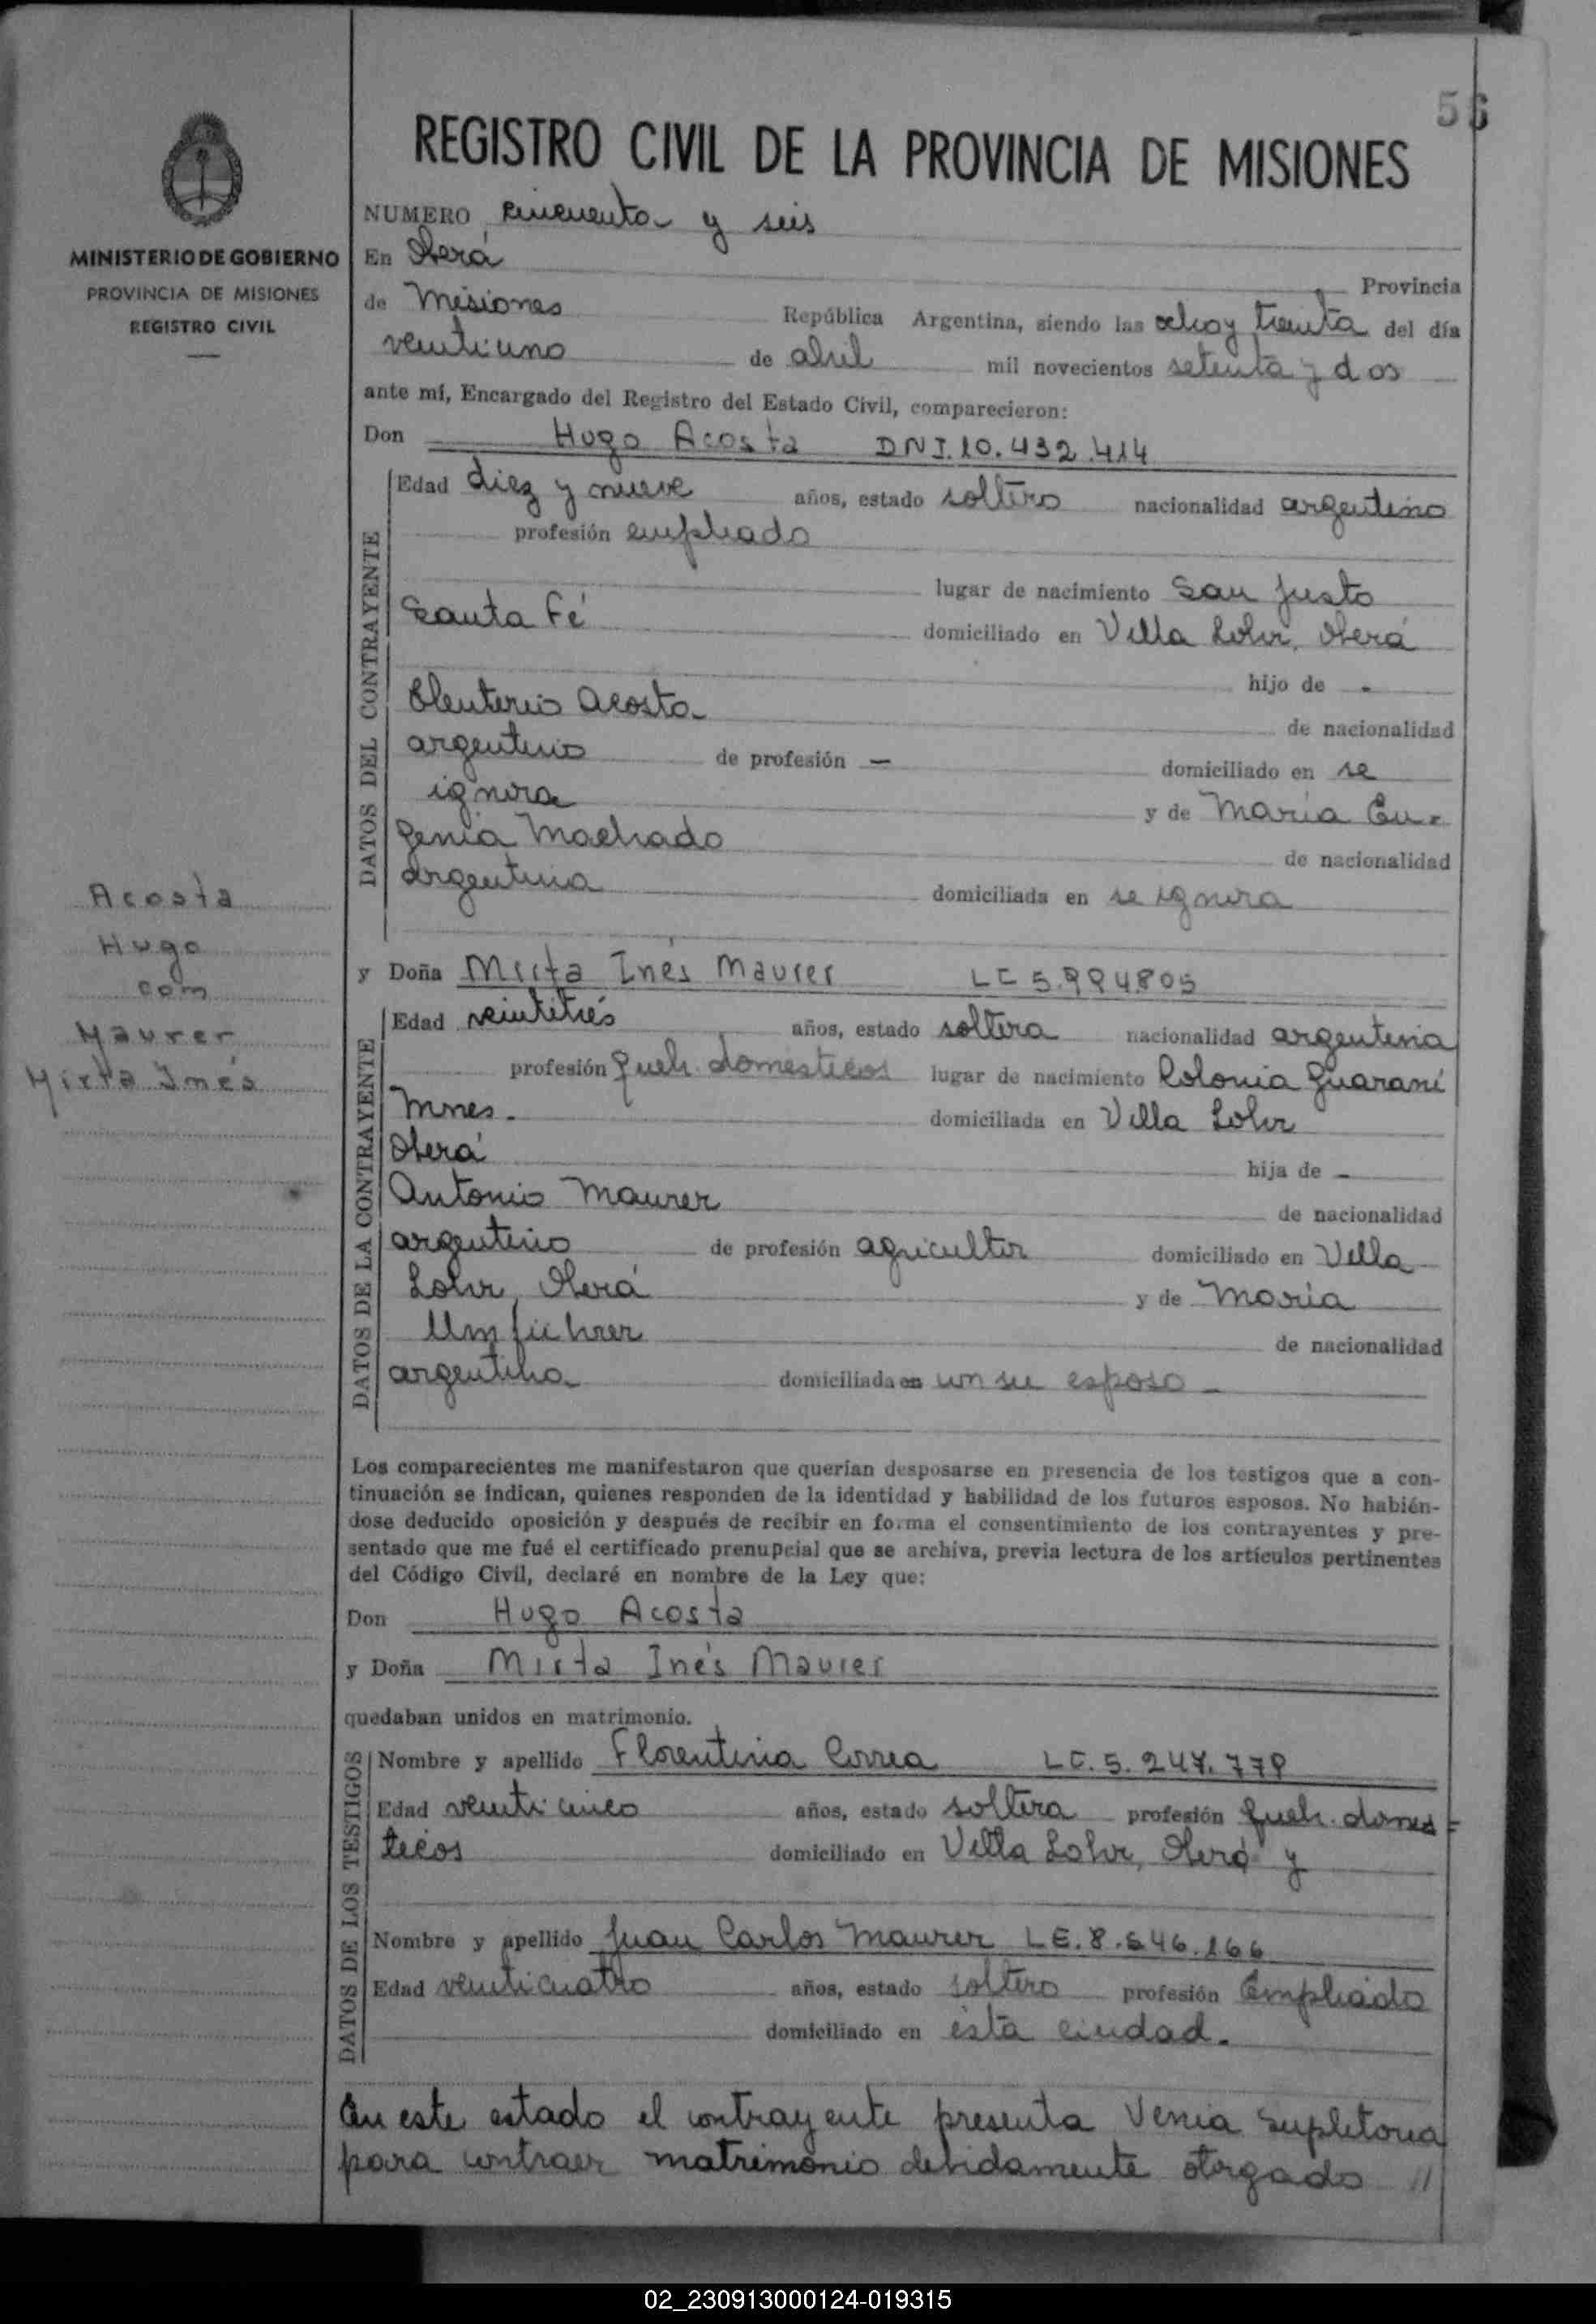 56
REGISTRO CIVIL DE LA PROVINCIA DE MISIONES
MINISTERIO DE GOBIERNO
PROVINCIA DE MISIONES
REGISTRO CIVIL
NUMERO cincuenta y seis
En Oberá Provincia
de Misiones República Argentina, siendo las ocho y treinta del día
veintiuno de abril mil novecientos setenta y dos
ante mí, Encargado del Registro del Estado Civil, comparecieron:
Don Hugo Acosta DNI.10.432.414
DATOS DEL CONTRAYENTE
Edad diez y nueve años, estado soltero nacionalidad argentino
profesión empleado
lugar de nacimiento San Justo
Santa Fé domiciliado en Villa Lohr, Oberá
hijo de -
Eleuterio Acosta de nacionalidad
argentino de profesión — domiciliado en se
ignora y de María Eu-
genia Machado de nacionalidad
argentina domiciliada en se ignora
Acosta
Hugo
com
Maurer
Mirta Inés
y Doña Mirta Inés Maurer LC 5.994.805
DATOS DE LA CONTRAYENTE
Edad veintitrés años, estado soltera nacionalidad argentina
profesión queh. domesticos lugar de nacimiento Colonia Guaraní
Mnes. domiciliada en Villa Lohr
Oberá hija de -
Antonio Maurer de nacionalidad
argentino de profesión agricultor domiciliado en Villa
Lohr, Oberá y de María
Umfuhrer de nacionalidad
argentina domiciliada en con su esposo
Los comparecientes me manifestaron que querían desposarse en presencia de los testigos que a con-
tinuación se indican, quienes responden de la identidad y habilidad de los futuros esposos. No habién-
dose deducido oposición y después de recibir en forma el consentimiento de los contrayentes y pre-
sentado que me fué el certificado prenupcial que se archiva, previa lectura de los artículos pertinentes
del Código Civil, declaré en nombre de la Ley que:
Don Hugo Acosta
y Doña Mirta Inés Maurer
quedaban unidos en matrimonio.
DATOS DE LOS TESTIGOS
Nombre y apellido Florentina Correa LC. 5. 247. 778
Edad veinticinco años, estado soltera profesión queh. domes=
ticos domiciliado en Villa Lohr, Oberá y
Nombre y apellido Juan Carlos Maurer LE.8.546.166
Edad veinticuatro años, estado soltero profesión Empleado
domiciliado en ésta ciudad.
En este estado el contrayente presenta Venia Supletoria
para contraer matrimonio debidamente otorgado //
02_230913000124-019315